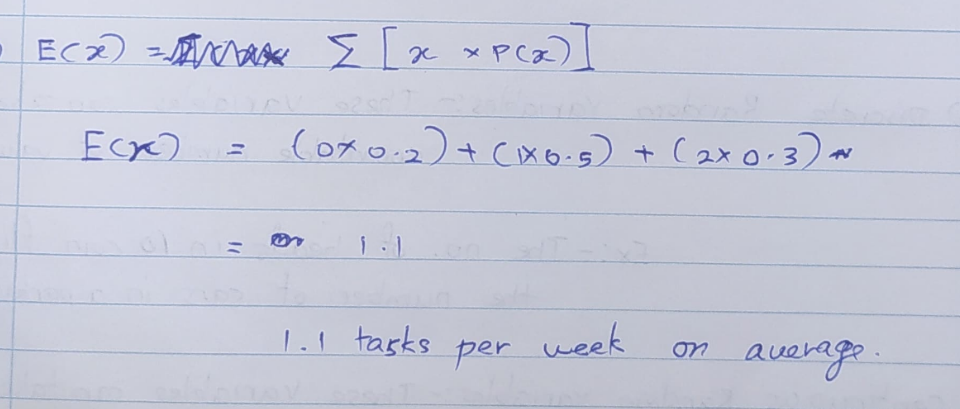 E(x) = Σ [x × P(x)]
E(x) = (0×0.2) + (1×0.5) + (2×0.3)
= 1.1
1.1 tasks per week on average.